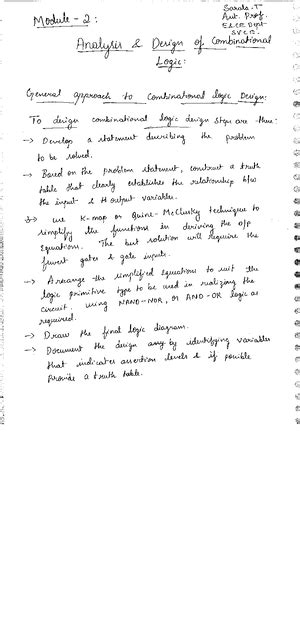 Module - 2:
Sarala. T
Asst. Prof.
E&CE Dept
SVCE.
Analysis & Design of Combinational
Logic:
General approach to Combinational Logic Design:
To design combinational logic design steps are thus:
→ Develop a statement describing the problem
to be solved.
→ Based on the problem statement, construct a truth
table that clearly establishes the relationship b/w
the input & output variables.
→ use K-map or Quine-McClusky technique to
simplify the functions in deriving the o/p
Equations. The best solution will require the
fewest gates & gate inputs.
→ Arrange the simplified Equations to suit the
logic primitive type to be used in realizing the
circuit, using NAND-NOR, or AND-OR logic as
required.
→ Draw the final logic diagram.
→ Document the design by identifying variables
that indicates assertion levels & if possible
provide a truth table.